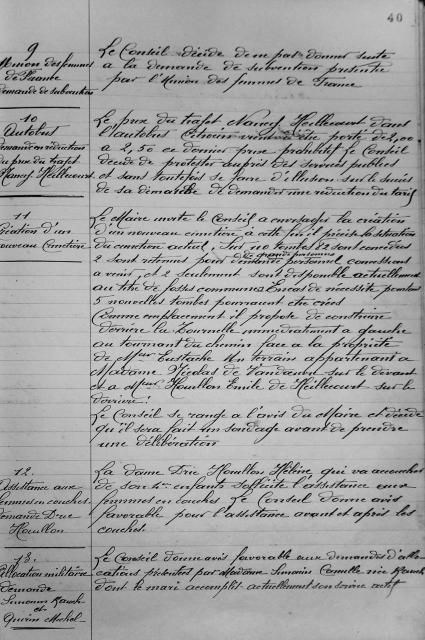 40
9
Union des femmes
de France
demande de subvention
Le Conseil décide de ne pas donner suite
à la demande de subvention présentée
par l'Union des femmes de France
10
Autobus
demande en réduction
du prix du trajet
Nancy Heillecourt
Le prix du trajet Nancy Heillecourt dans
l'autobus Citroën été porté de 2,00
à 2,50 ce dernier prix prohibitif le Conseil
décide de protester auprès des services publics
et sans toutefois se faire d'illusion sur le succès
de sa démarche de demander une réduction du tarif
11
Création d'un
nouveau Cimetière
Le Maire invite le Conseil à envisager la création
d'un nouveau cimetière à cette fin il précise la situation
du cimetière actuel, Sur tombes 82 sont concédées
de grandes personnes
2 sont retenues pour concessions
à venir, et 2 seulement sont disponible actuellement
au titre de fosses communes En cas de nécessité
5 nouvelles tombes pourraient être créées
Comme emplacement il propose de construire
derrière la Tournelle immédiatement à gauche
au tournant du chemin face à la propriété
de Mr Eustache Un terrain appartenant à
Madame Nicolas de Vandoeuvre sur le devant
et à Mr Houllon Emile de Heillecourt sur le
derrière.
Le Conseil se range à l'avis du Maire et décide
qu'il sera fait un sondage avant de prendre
une délibération
12.
Assistance aux
femmes en couches
demande Drie
Houillon
La dame Drie Houllon Hélène, qui va accoucher
de son 4me enfant sollicite l'assistance aux
femmes en couches Le Conseil donne avis
favorable pour l'assistance avant et après les
couches.
13.
Allocation militaire
demande
Simonin
et
Quirin Michel
Le Conseil donne avis favorable aux demandes d'allo
cations présentées par Madame Simonin Camille née
dont le mari accomplit actuellement son service actif